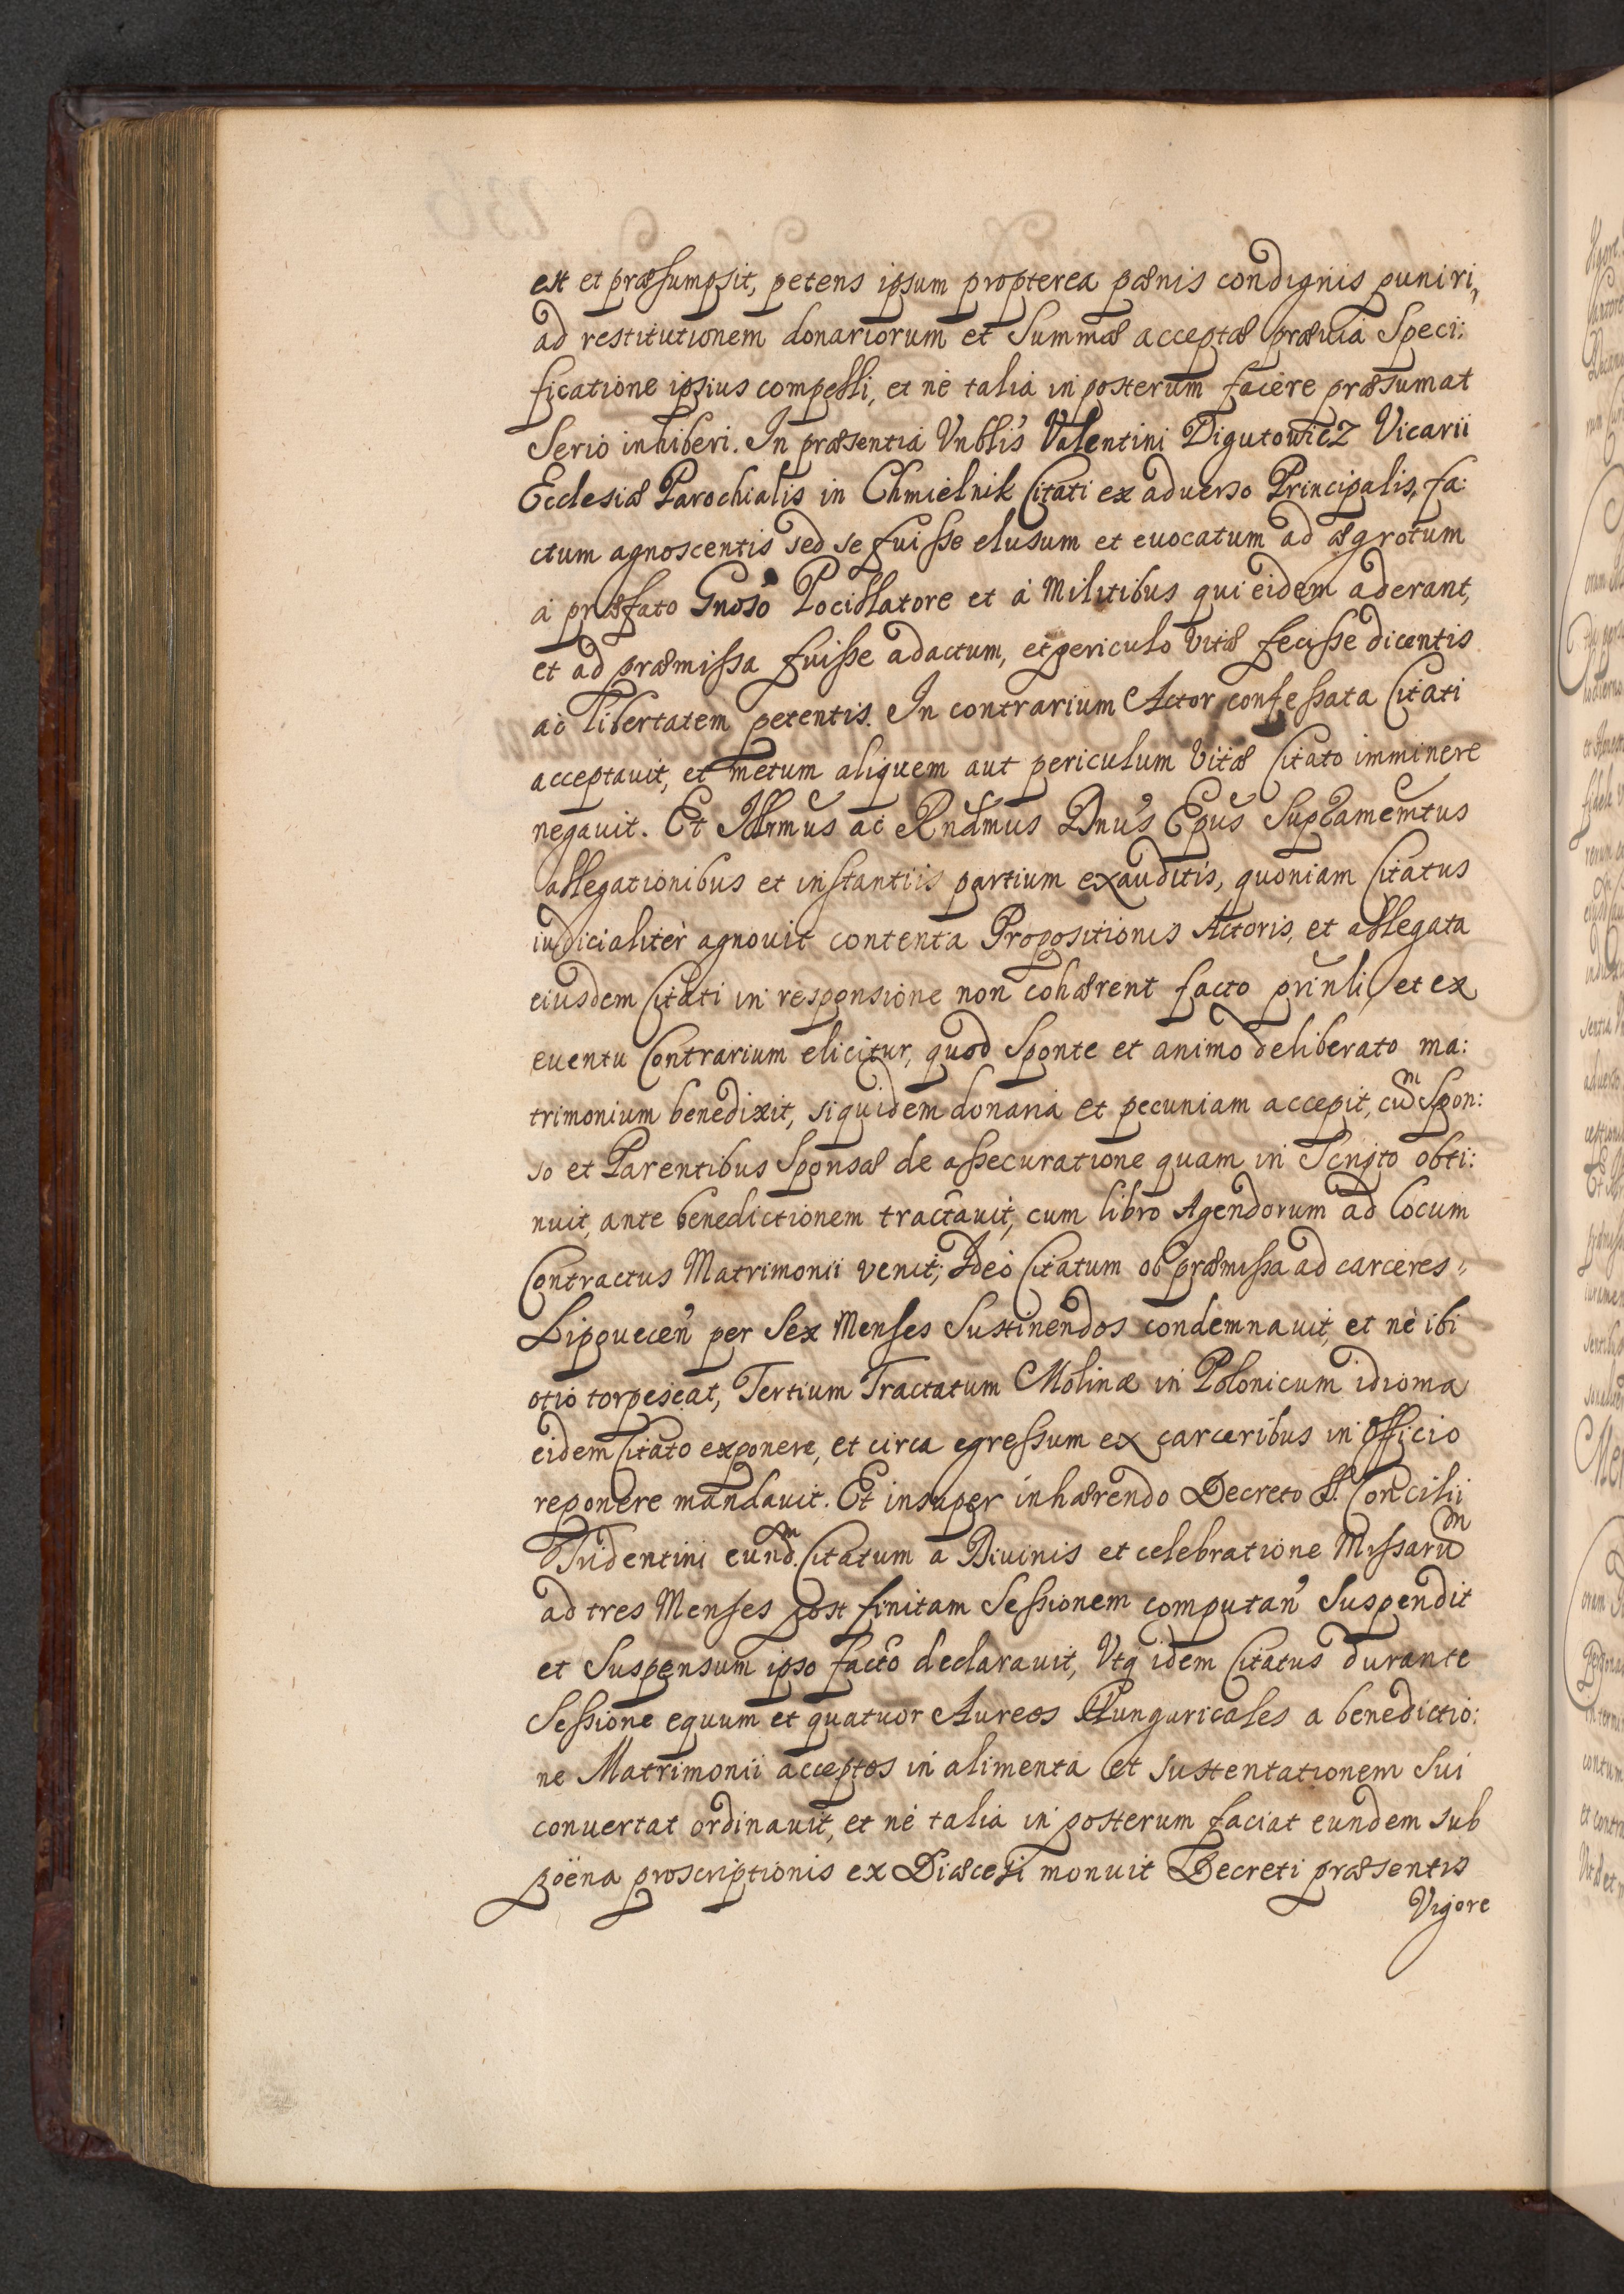 est et præsumpsit, petens ipsum propterea pœnis condignis puniri,
ad restitutionem donariorum et Summæ acceptæ præuia Speci:
ficatione ipsius compelli, et nè talia in posterum facère præsumat
Serio inhiberi. In præsentia Vnblis Valentini Digutowicz Vicarii
Ecclesiæ Parochialis in Chmielnik Citati ex aduerso Principalis, fa:
ctum agnoscentis sed se fuisse elusum et euocatum ad ægrotum
à præfato Gnoso Pocillatore et à Militibus qui eidem aderant,
et ad præmissa fuisse adactum, et periculo Vitæ fecisse dicentis
ac libertatem petentis. In contrarium Actor confessata Citati
acceptauit, et metum aliquem aut periculum Vitæ Citato imminere
negauit. Et Illrmus ac Rndmus Dnus Epus Supramemtus
allegationibus et instantiis partium exauditis, quoniam Citatus
iudicialitèr agnouit contenta Propositionis Actoris, et allegata
eiusdem Citati in responsione non cohærent facto prinli, et ex
euentu Contrarium elicitur, quod Sponte et animo deliberato ma:
trimonium benedixit, siquidem donaria et pecuniam accepit, cum Spon:
so et Parentibus Sponsæ de assecuratione quam in Scripto obti:
nuit, ante benedictionem tractauit, cum libro Agendorum ad locum
Contractus Matrimonii venit; Ideo Citatum ob præmissa ad carceres
Lipouecen per Sex Menses Sustinendos condemnauit, et nè ibi
otio torpescat, Tertium Tractatum Molinæ in Polonicum idioma
eidem Citato exponere, et circa egressum ex carceribus in Officio
reponere mandauit. Et insuper inhærendo Decreto S. Concilii
Tridentini eundm Citatum a Diuinis et celebratione Missarum
ad tres Menses post finitam Sessionem computan Suspendit
et Suspensum ipso facto declarauit, Vtq idem Citatus durante
Sessione equum et quatuor Aureos Hungaricales a benedictio:
ne Matrimonii acceptos in alimenta et sustentationem Sui
conuertat ordinauit, et nè talia in posterum faciat eundem sub
poëna proscriptionis ex Diæcesi monuit Decreti præsentis
Vigore